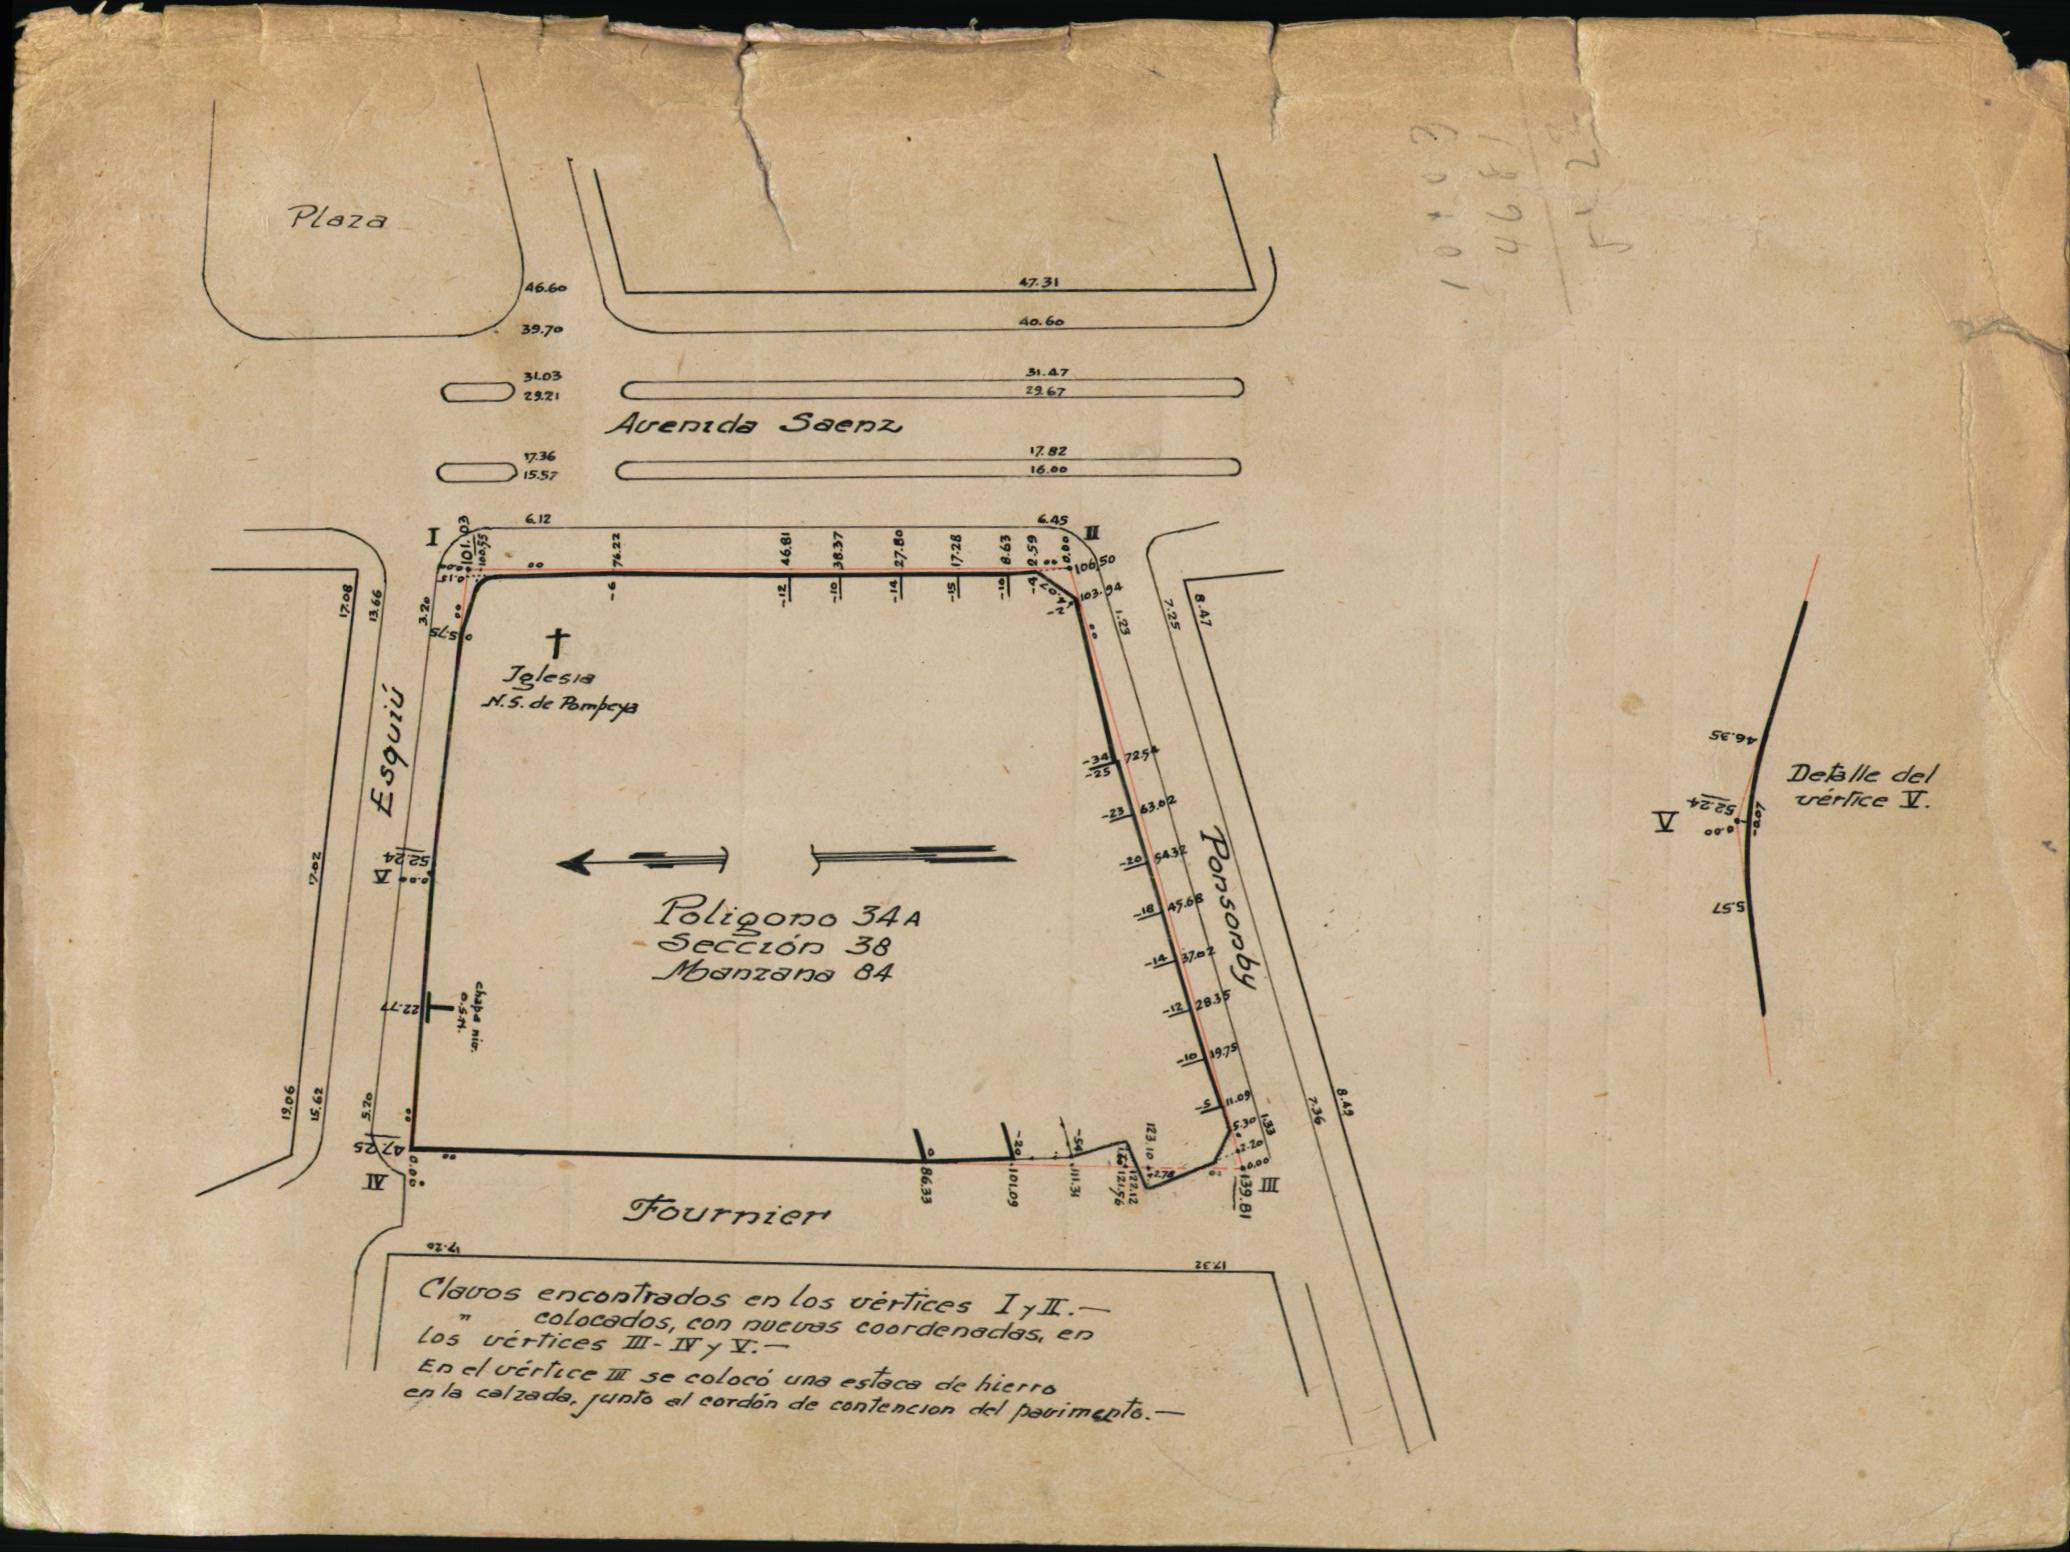 Plaza
46.60
39.70
47.31
40.60
31.03
29.21
31.47
29.67
Avenida Saenz
17.36
15.57
17.82
16.00
I
101.03
6.12
76.22
46.81
38.37
27.80
17.28
8.63
2.59
0.00
6.45
II
106.50
103.94
-6
-12
-10
-14
-15
-10
-4
17.08
13.66
3.20
5.75
1.23
7.25
8.47
Iglesia
N.S. de Pompeya
Esquiú
17.02
52.24
V
0.00
22.77
chapa niv.
O.S.N.
19.06
15.62
5.20
47.25
0.00
IV
Poligono 34A
Sección 38
Manzana 84
Ponsonby
-34
-25
72.54
-23
63.02
-20
54.32
-18
45.68
-14
37.02
-12
28.35
-10
19.75
-5
11.09
5.30
1.33
7.36
8.49
2.20
0.00
III
139.81
86.33
-20
101.09
-54
111.31
121.56
122.12
123.10
Fournier
17.20
17.32
Clavos encontrados en los vértices I y II.—
" colocados, con nuevas coordenadas, en
los vértices III - IV y V.—
En el vértice III se colocó una estaca de hierro
en la calzada, junto al cordón de contencion del pavimento.—
46.35
52.24
V
0.00
5.57
Detalle del
vértice V.